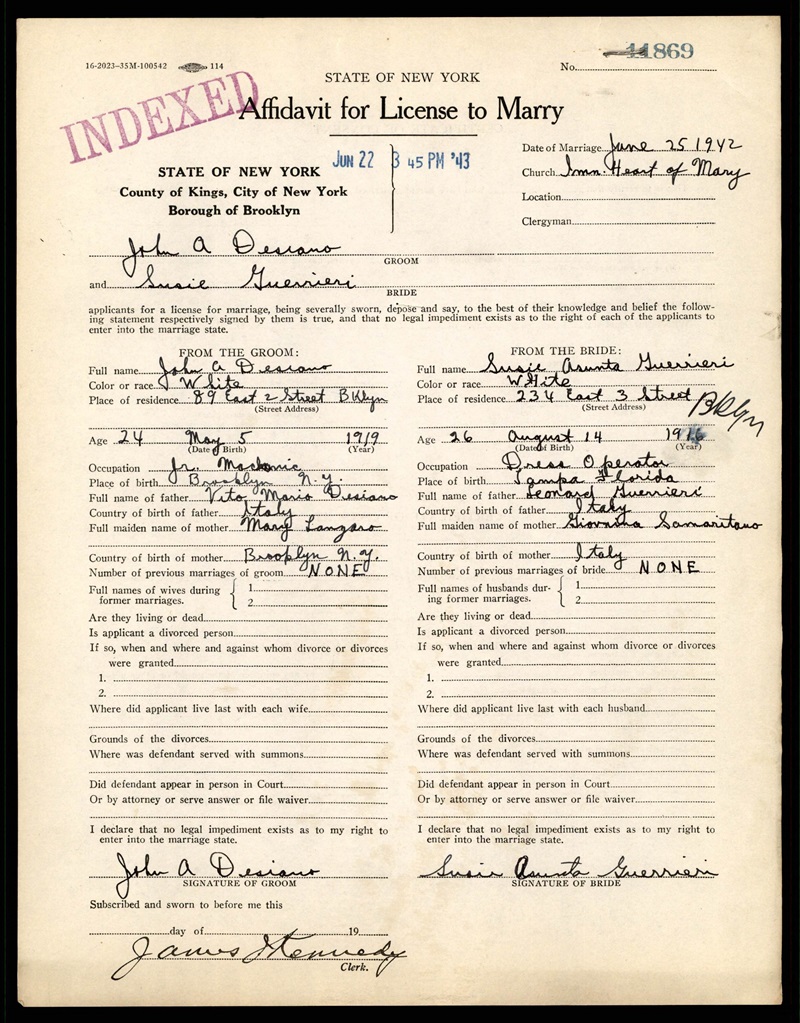 16-2023-35M-100542 114
11869
No.
STATE OF NEW YORK
INDEXED
Affidavit for License to Marry
JUN 22 3 45 PM '43
Date of Marriage June 25 1942
STATE OF NEW YORK
Church Imm. Heart of Mary
County of Kings, City of New York
Location
Borough of Brooklyn
Clergyman
John A Desiano
GROOM
and Susie Guerrieri
BRIDE
applicants for a license for marriage, being severally sworn, depose and say, to the best of their knowledge and belief the follow-
ing statement respectively signed by them is true, and that no legal impediment exists as to the right of each of the applicants to
enter into the marriage state.
FROM THE GROOM:
Full name John A Desiano
Color or race White
Place of residence 89 East 2 Street BKlyn
(Street Address)
Age 24 May 5 1919
(Date of Birth) (Year)
Occupation Jr.
Place of birth Brooklyn N.Y.
Full name of father Vito Mario Desiano
Country of birth of father Italy
Full maiden name of mother Mary Lanzaro
Country of birth of mother Brooplyn N.Y.
Number of previous marriages of groom NONE
Full names of wives during 1
former marriages. 2
Are they living or dead
Is applicant a divorced person
If so, when and where and against whom divorce or divorces
were granted
1.
2.
Where did applicant live last with each wife
Grounds of the divorces
Where was defendant served with summons
Did defendant appear in person in Court
Or by attorney or serve answer or file waiver
I declare that no legal impediment exists as to my right to
enter into the marriage state.
John A Desiano
SIGNATURE OF GROOM
Subscribed and sworn to before me this
day of 19
James J Kennedy
Clerk.
FROM THE BRIDE:
Full name Susie Asunta Guerrieri
Color or race WHite
Place of residence 234 East 3 Street BKlyn
(Street Address)
Age 26 August 14 1916
(Date of Birth) (Year)
Occupation Dress Operator
Place of birth Tampa Florida
Full name of father Leonard Guerrieri
Country of birth of father Italy
Full maiden name of mother Giovanna Samaritano
Country of birth of mother Italy
Number of previous marriages of bride NONE
Full names of husbands dur- 1
ing former marriages. 2
Are they living or dead
Is applicant a divorced person
If so, when and where and against whom divorce or divorces
were granted
1.
2.
Where did applicant live last with each husband
Grounds of the divorces
Where was defendant served with summons
Did defendant appear in person in Court
Or by attorney or serve answer or file waiver
I declare that no legal impediment exists as to my right to
enter into the marriage state.
Susie Asunta Guerrieri
SIGNATURE OF BRIDE